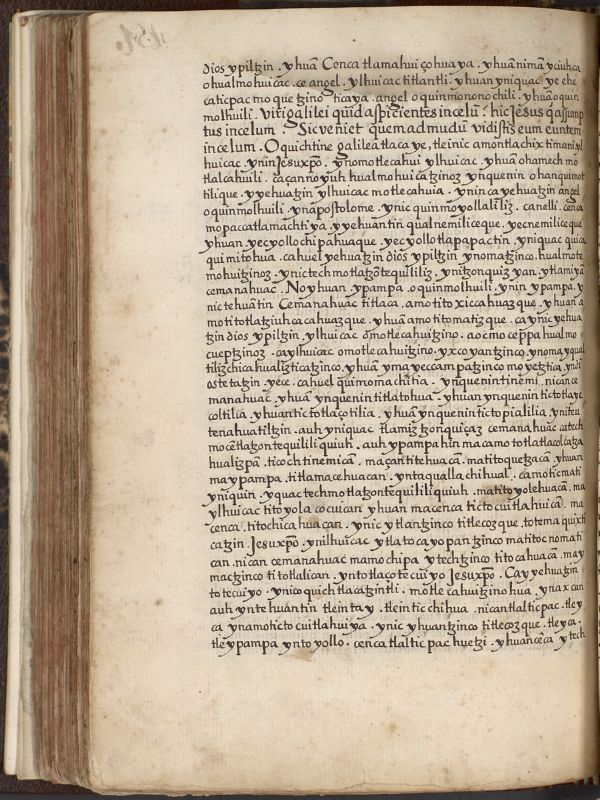 dios ypiltzin . yhuā Cenca tlamahuiçohuaya . yhuā nimā yciuhca
ohualmohuicac . ce angel . ylhuicac titlantli . yhuan yniquac ye ehe
caticpac moquetzinoticaya . angel oquinmononochili . yhuā oquin
molhuili. Viri galilei quid aspicientes incelū? hic Jesus q̄ assump
tus incelum? Sic veniet quemadmudū vidistis eum euntem
incelum. Oquichtine galilea tlacaye, tleinic amontlachixtimani, yl
huicac . ynin Jesuxp̄o . ynomotlecahui ylhuicac . yhuā ohamech mo
tlalcahuili . caçanno yuh hualmohuicatzinoz ynquenin ohanquimot
tilique . yyehuatzin ylhuicac motlecahuia . ynin ca yehuatzin angel
oquinmolhuili . ynapostolome . ynic quinmoyollaliliz . canelli . cenca
mopaccatlamachtiya . yyehuantin qualnemiliceque . yecnemiliceque
yhuan yecyollo chipahuaque . yecyollo tlapapactin . yniquac quica
quimitohua . cahuel yehuatzin dios ypiltzin ynomatzinco . hualmote
mohuitzinoz . ynic techmotlatzōtequililiz . ynitzonquizyan . ytlamiyā
cemanahuac . No yhuan ypampa . oquinmolhuili . ynin ypampa . y
nic tehuātin Cemanahuac titlaca . amo titoxiccahuazque . yhuan a
motitotlatziuhcacahuazque . yhuā amo titomatizque . ca ynic yehua
tzin dios ypiltzin . ylhuicac ōmotlecahuitzino . aocmo cep̄pa hualmo
cueptzinoz . ca ylhuicac omotlecahuitzino . yxcoyantzinco . ynomayqual
tiliz chicahualiztica tzinco . yhuan yma yeccampa tzinco moyetztica, yn di
os tetatzin . yece . cahuel quimomachitia . ynquenin tinemi . nican ce
manahuac . yhuā ynquenin titlatohua . yhuan ynquenin tictotlaye
coltilia . yhuan tictotlaçotilia . yhuā ynquenin tictopialilia, yniteu
tenahuatiltzin . auh yniquac tlamiz tzonquiçaz cemanahuac catech
mocētlatzontequililiquiuh . auh ypampa hin macamo totlatlacolcatza
hualizpā . ticochtinemicā . maçan titehuacā . matitoquetzacā . yhuan
ma ypampa . titlamacehuacan . yntaqualla chihual . camo ticmati
yniquin . yquac techmotlatzontequililiquiuh . matitoyolehuacā . ma
ylhuicac titoyolacocuican yhuan macenca tictocuitlahuicā . ma
cenca . titochicahuacan . ynic ytlantzinco titlecozque . totemaquixti
catzin . Jesuxp̄o . yn ilhuicac ytlatocayopantzinco matitocnomati
can . nican cemanahuac mamochipa ytechtzinco titocahuacā . may
mactzinco titotlalican . yntotlaçotecuiyo Jesuxp̄o . Ca yyehuatzin
totecuiyo . ynicoquichtlacatzintli . motlecahuitzinohua . ynaxcan
auh yntehuantin tleintay . tleintic chihua . nican tlalticpac . tley
ca ynamotictocuitlahuiya . ynic yhuantzinco titlecozque . tleyca .
tleypampa yntoyollo . cenca tlalticpac huetzi . yhuan cēca ytech